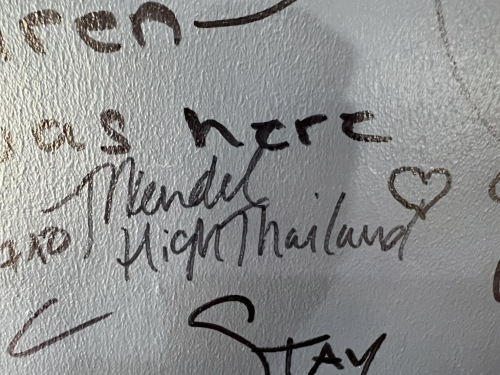 ren
as here
Mendel
High Thailand
STAY